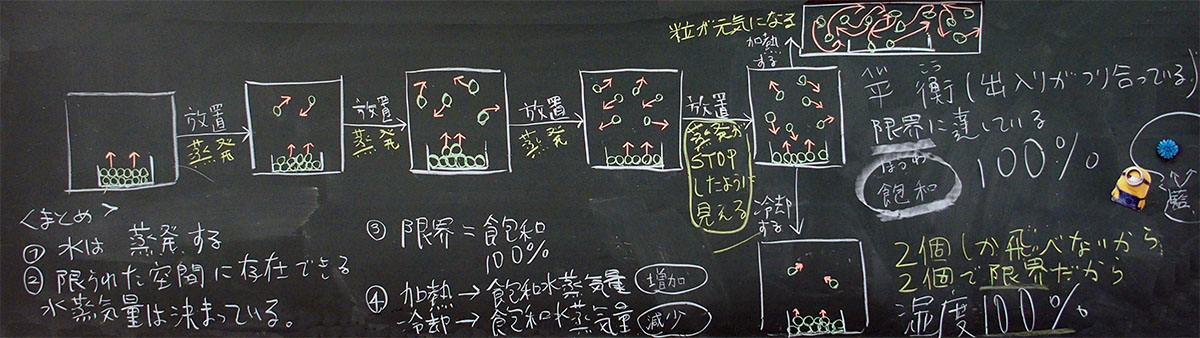 放置
蒸発
放置
蒸発
放置
蒸発
放置
蒸発が
STOP
したように
見える
粒が元気になる
加熱
する
冷却
する
へい こう
平 衡(出入りがつり合っている)
限界に達している
ほうわ
飽和
100%
2個しか飛べないから
2個で限界だから
湿度100%
<まとめ>
① 水は 蒸発する
② 限られた空間に存在できる
水蒸気量は決まっている。
③ 限界=飽和
100%
④ 加熱→飽和水蒸気量 増加
冷却→飽和水蒸気量 減少